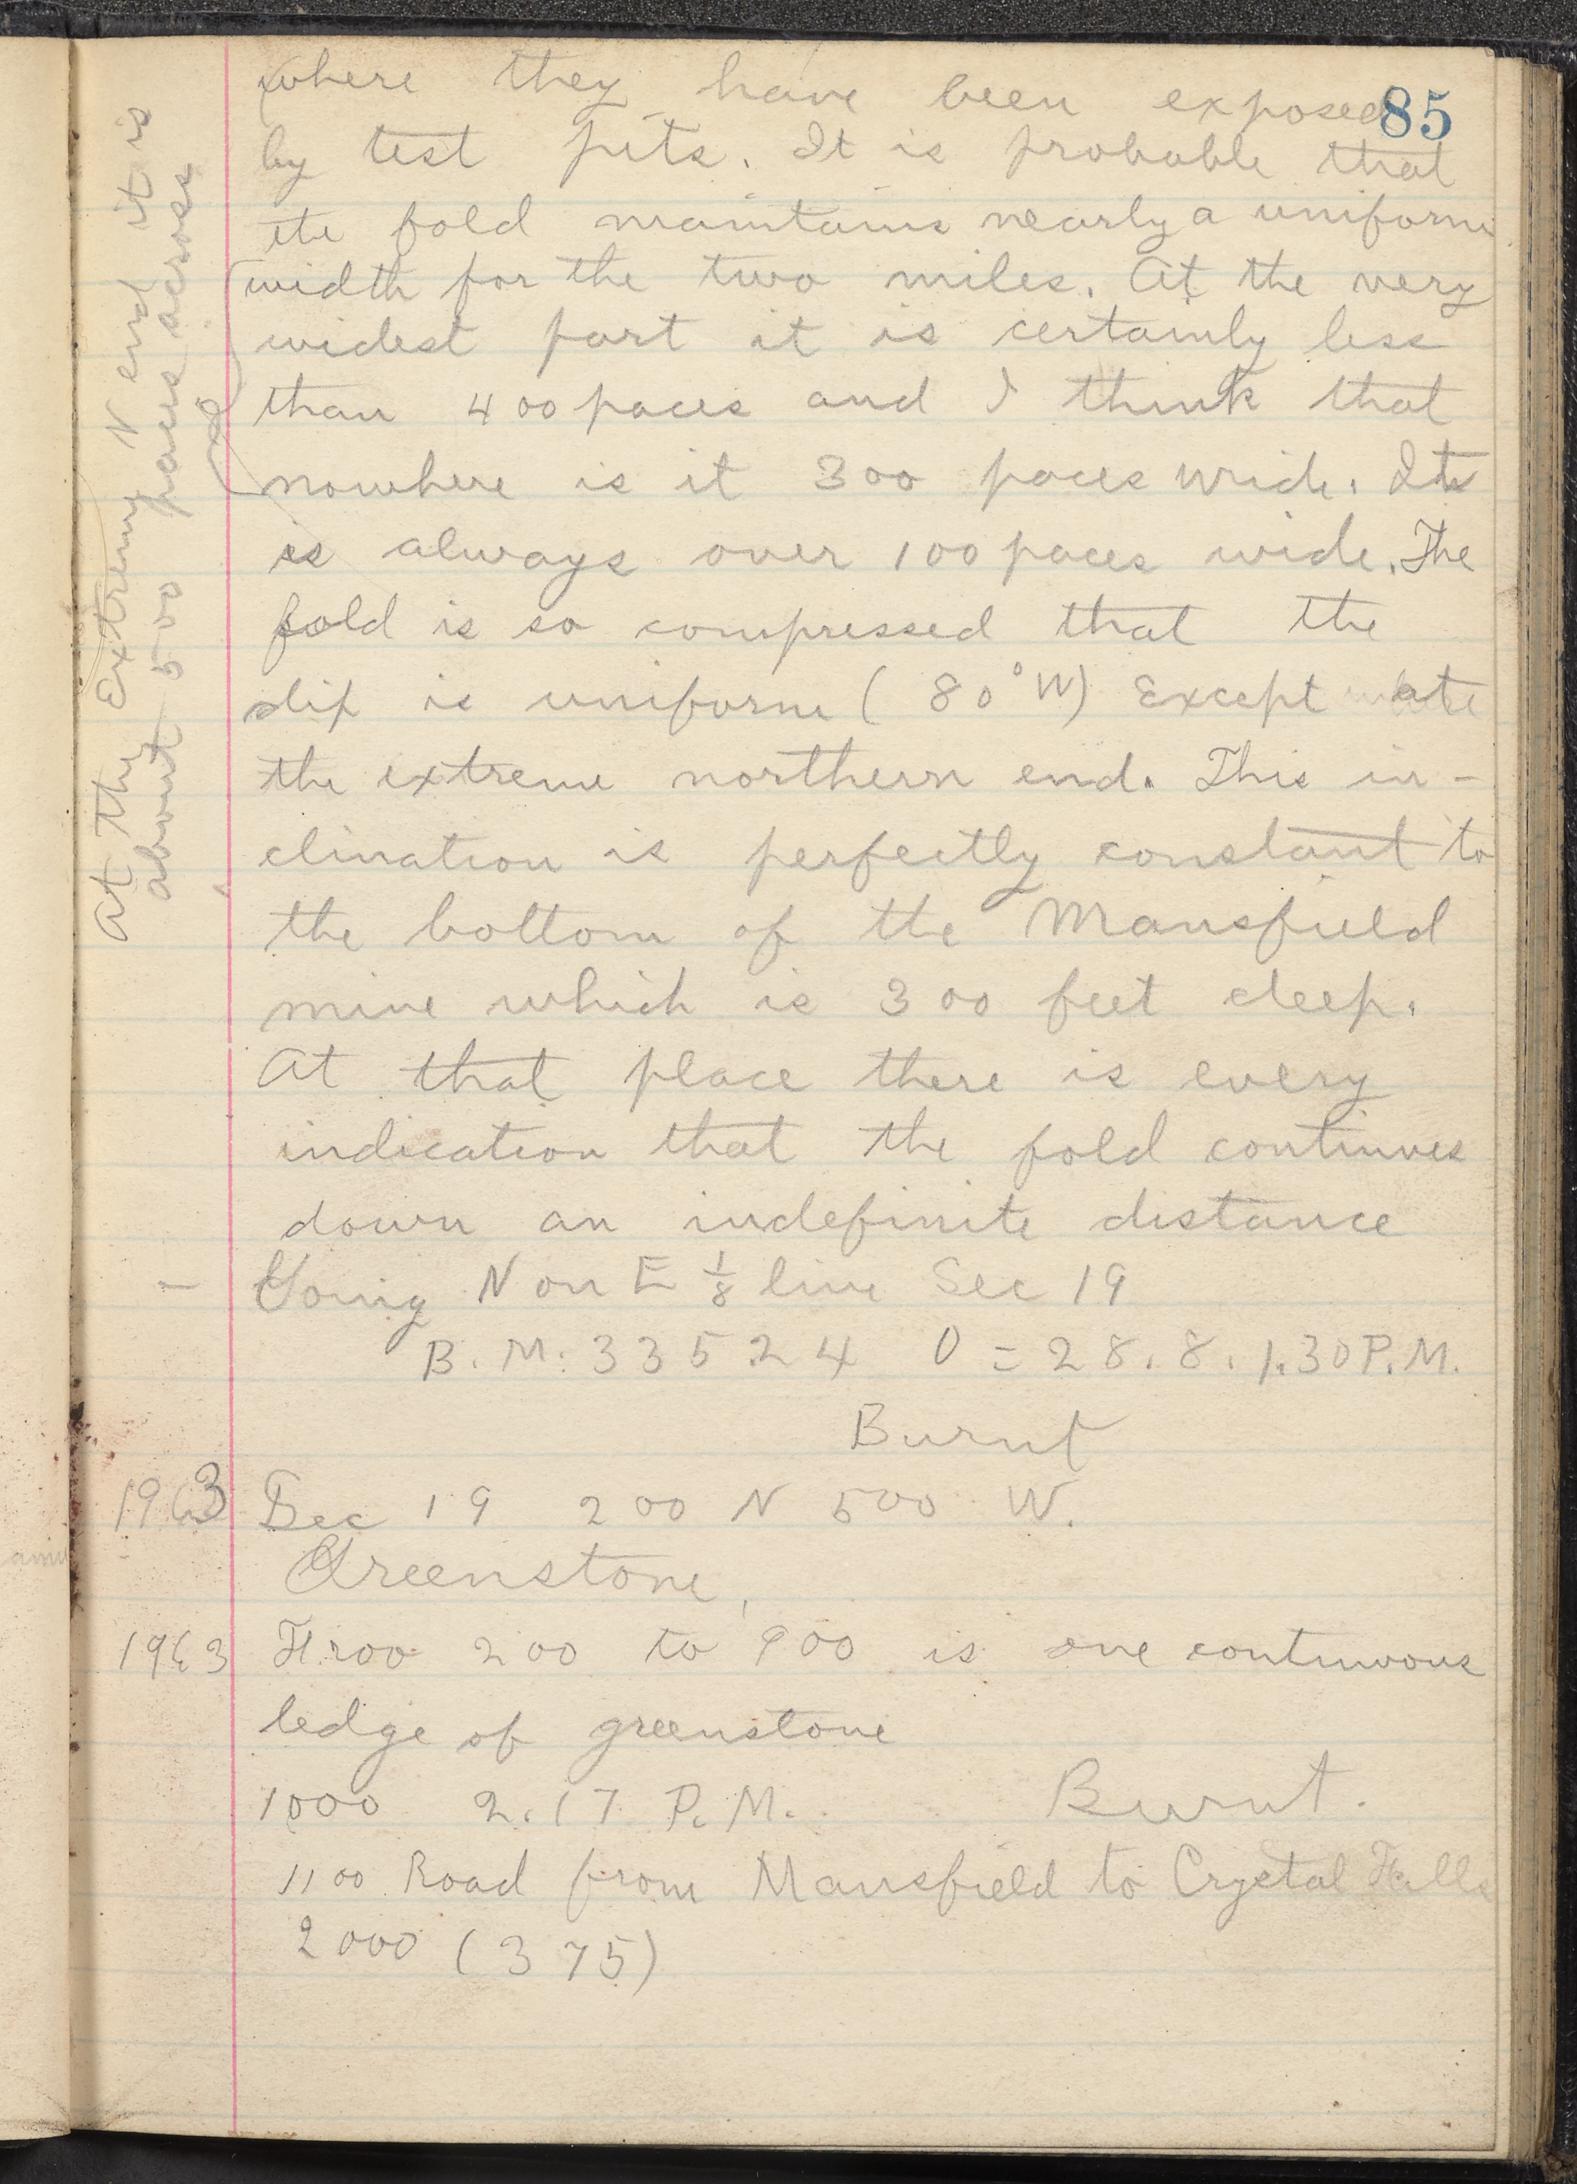 85
where they have been exposed
by test pits. It is probable that
the fold maintains nearly a uniform
width for the two miles. At the very
widest part it is certainly less
than 400 paces and I think that
nowhere is it 300 paces wide. Its
is always over 100 paces wide. The
fold is so compressed that the
dip is uniform ( 80° W) Except at
the extreme northern end. This in-
clination is perfectly constant to
the bottom of the Mansfield
mine which is 300 feet deep.
At that place there is every
indication that the fold continues
down an indefinite distance
– Going N on E 1/8 line Sec 19
B. M: 33524 0 = 28.8. 1.30 P.M.
Burnt
1963 Sec 19 200 N 500 W.
Greenstone,
1963 200 to 900 is one continuous
ledge of greenstone
1000 2.17 P.M. Burnt.
1100 Road from Mansfield to Crystal Falls
2000 (375)
At the Extreme N end it is
about 500 paces across